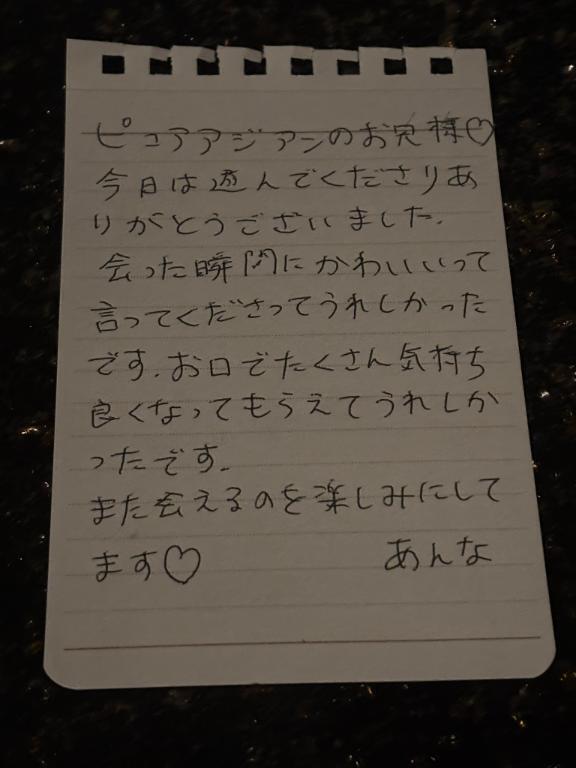 ピュアアジアンのお兄様♡
今日は遊んでくださりあ
りがとうございました.
会った瞬間にかわいいって
言ってくださってうれしかった
です.お口でたくさん気持ち
良くなってもらえてうれしか
ったです.
また会えるのを楽しみにして
ます♡ あんな